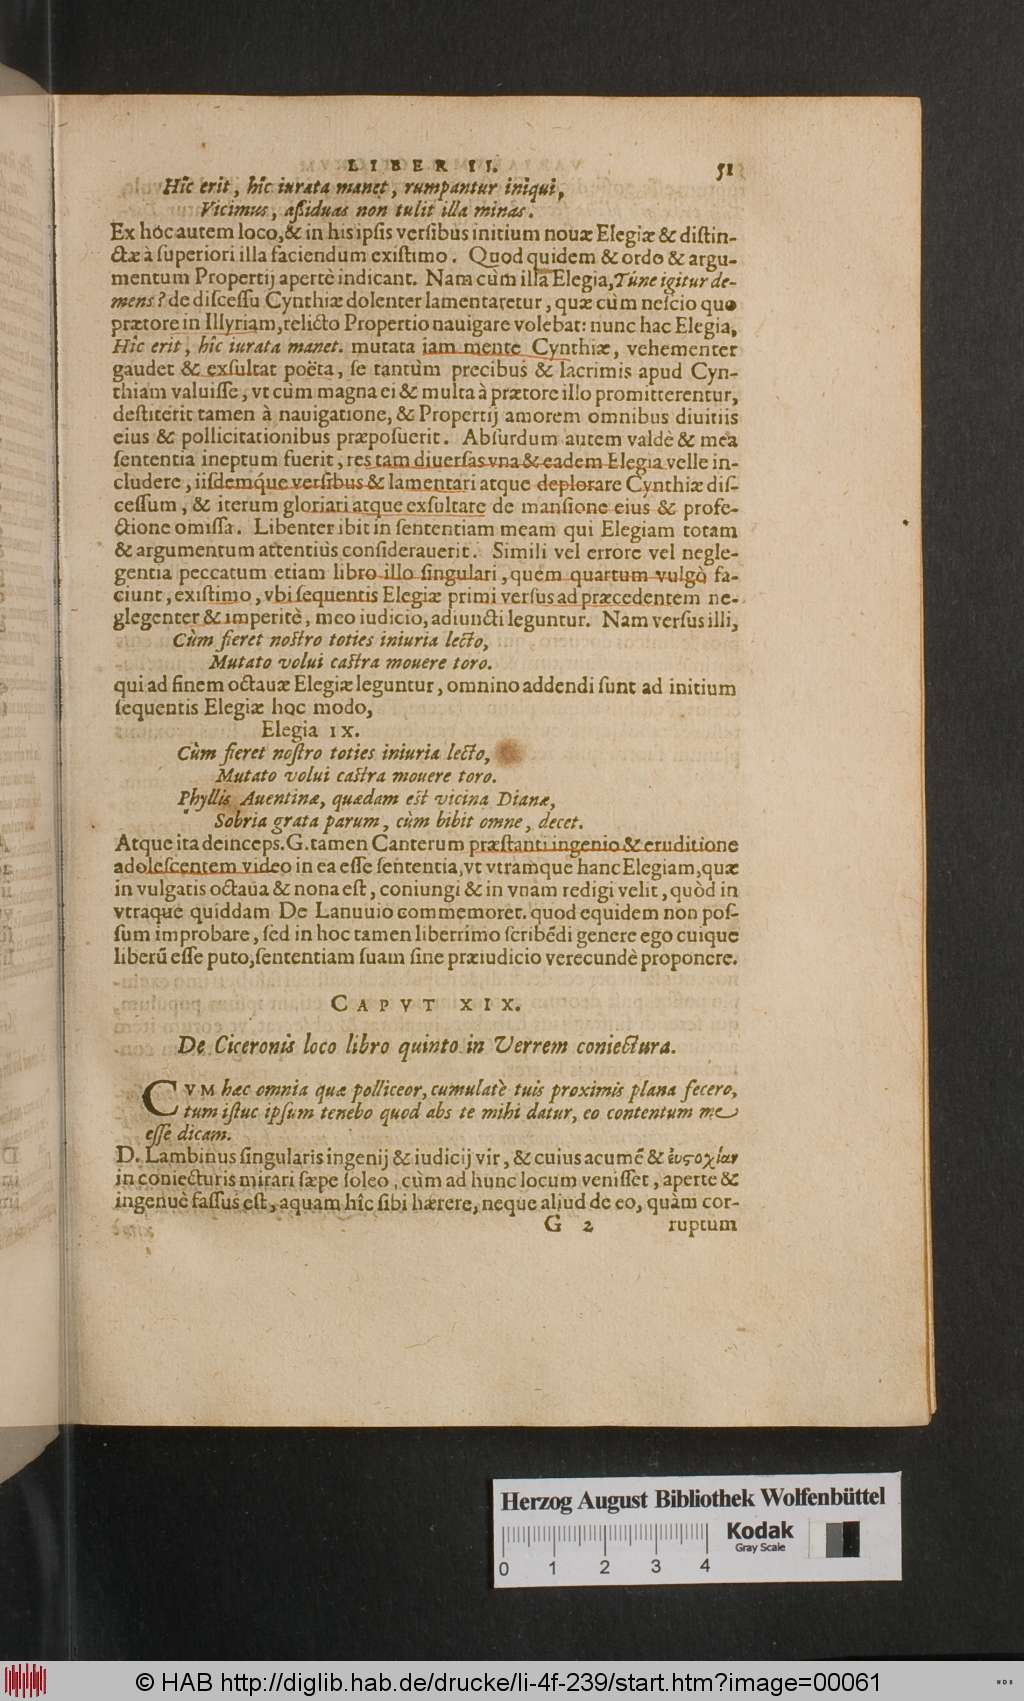 LIBER II. 51
Hîc erit, hîc iurata manet, rumpantur iniqui,
Vicimus, aſsiduas non tulit illa minas.
Ex hoc autem loco, & in his ipſis verſibus initium nouæ Elegiæ & diſtin-
ctæ à ſuperiori illa faciendum exiſtimo. Quod quidem & ordo & argu-
mentum Propertij apertè indicant. Nam cùm illa Elegia, Túne igitur de-
mens? de diſceſſu Cynthiæ dolenter lamentaretur, quæ cùm neſcio quo
prætore in Illyriam, relicto Propertio nauigare volebat: nunc hac Elegia,
Hîc erit, hîc iurata manet. mutata iam mente Cynthiæ, vehementer
gaudet & exſultat poëta, ſe tantùm precibus & lacrimis apud Cyn-
thiam valuiſſe, vt cùm magna ei & multa à prætore illo promitterentur,
deſtiterit tamen à nauigatione, & Propertij amorem omnibus diuitiis
eius & pollicitationibus præpoſuerit. Abſurdum autem valdè & mea
ſententia ineptum fuerit, res tam diuerſas vna & eadem Elegia velle in-
cludere, iiſdemque verſibus & lamentari atque deplorare Cynthiæ diſ-
ceſſum, & iterum gloriari atque exſultare de manſione eius & profe-
ctione omiſſa. Libenter ibit in ſententiam meam qui Elegiam totam
& argumentum attentiùs conſiderauerit. Simili vel errore vel negle-
gentia peccatum etiam libro illo ſingulari, quem quartum vulgò fa-
ciunt, exiſtimo, vbi ſequentis Elegiæ primi verſus ad præcedentem ne-
glegenter & imperitè, meo iudicio, adiuncti leguntur. Nam verſus illi,
Cùm fieret noſtro toties iniuria lecto,
Mutato volui caſtra mouere toro.
qui ad finem octauæ Elegiæ leguntur, omnino addendi ſunt ad initium
ſequentis Elegiæ hoc modo,
Elegia IX.
Cùm fieret noſtro toties iniuria lecto,
Mutato volui caſtra mouere toro.
Phyllis Auentinæ, quædam eſt vicina Dianæ,
Sobria grata parum, cùm bibit omne, decet.
Atque ita deinceps. G. tamen Canterum præſtanti ingenio & eruditione
adoleſcentem video in ea eſſe ſententia, vt vtramque hanc Elegiam, quæ
in vulgatis octaua & nona eſt, coniungi & in vnam redigi velit, quòd in
vtraque quiddam De Lanuuio commemoret. quod equidem non poſ-
ſum improbare, ſed in hoc tamen liberrimo ſcribẽdi genere ego cuique
liberũ eſſe puto, ſententiam ſuam ſine præiudicio verecundè proponere.
CAPVT XIX.
De Ciceronis loco libro quinto in Verrem coniectura.
CVM hæc omnia quæ polliceor, cumulatè tuis proximis plana fecero,
tum iſtuc ipſum tenebo quod abs te mihi datur, eo contentum me
eſſe dicam.
D. Lambinus ſingularis ingenij & iudicij vir, & cuius acumẽ & ἐυστοχίαν
in coniecturis mirari ſæpe ſoleo, cùm ad hunc locum veniſſet, aperte &
ingenuè faſſus eſt, aquam hîc ſibi hærere, neque aliud de eo, quàm cor-
G 2 ruptum
Herzog August Bibliothek Wolfenbüttel
Kodak
Gray Scale
0 1 2 3 4
© HAB http://diglib.hab.de/drucke/li-4f-239/start.htm?image=00061